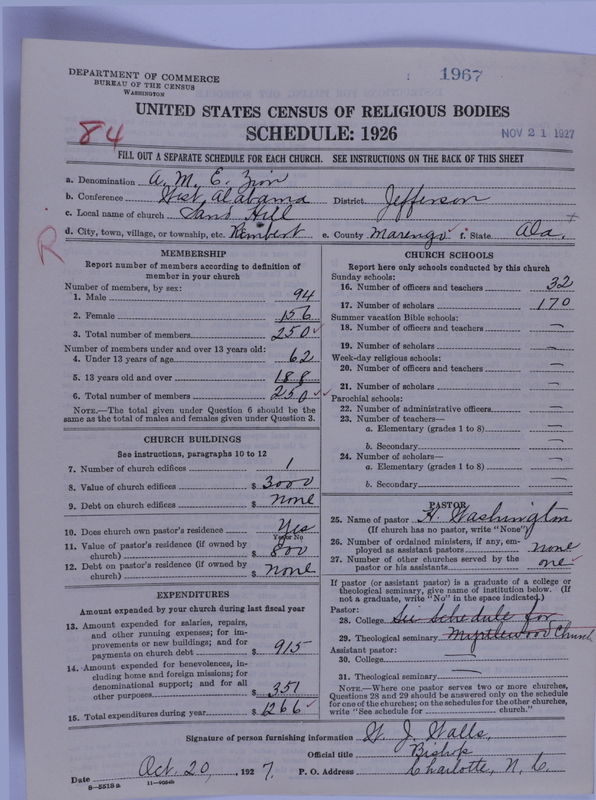 DEPARTMENT OF COMMERCE
BUREAU OF THE CENSUS
WASHINGTON
1967
UNITED STATES CENSUS OF RELIGIOUS BODIES
84
SCHEDULE: 1926
NOV 21 1927
FILL OUT A SEPARATE SCHEDULE FOR EACH CHURCH. SEE INSTRUCTIONS ON THE BACK OF THIS SHEET
a. Denomination A. M. E. Zion
b. Conference West Alabama District Jefferson
c. Local name of church Sand Hill
d. City, town, village, or township, etc. Rembert e. County Marengo f. State Ala.
R
MEMBERSHIP
Report number of members according to definition of
member in your church
Number of members, by sex:
1. Male 94
2. Female 156
3. Total number of members 250
Number of members under and over 13 years old:
4. Under 13 years of age 62
5. 13 years old and over 188
6. Total number of members 250
NOTE.—The total given under Question 6 should be
same as the total of males and females given under Question 3.
CHURCH BUILDINGS
See instructions, paragraphs 10 to 12
7. Number of church edifices 1
8. Value of church edifices $ 3000
9. Debt on church edifices $ none
10. Does church own pastor's residence Yes
Yes or No
11. Value of pastor's residence (if owned by
church) $ 800
12. Debt on pastor's residence (if owned by
church) $ none
EXPENDITURES
Amount expended by your church during last fiscal year
13. Amount expended for salaries, repairs,
and other running expenses; for im-
provements or new buildings; and for
payments on church debt $ 915
14. Amount expended for benevolences, in-
cluding home and foreign missions; for
denominational support; and for all
other purposes $ 351
15. Total expenditures during year $ 1266
CHURCH SCHOOLS
Report here only schools conducted by this church
Sunday schools:
16. Number of officers and teachers 32
17. Number of scholars 170
Summer vacation Bible schools:
18. Number of officers and teachers —
19. Number of scholars —
Week-day religious schools:
20. Number of officers and teachers —
21. Number of scholars —
Parochial schools:
22. Number of administrative officers —
23. Number of teachers—
a. Elementary (grades 1 to 8) —
b. Secondary —
24. Number of scholars—
a. Elementary (grades 1 to 8) —
b. Secondary —
PASTOR
25. Name of pastor H. Washington
(If church has no pastor, write "None")
26. Number of ordained ministers, if any, em-
ployed as assistant pastors none
27. Number of other churches served by the
pastor or his assistants one
If pastor (or assistant pastor) is a graduate of a college or
theological seminary, give name of institution below. (If
not a graduate, write "No" in the space indicated.)
Pastor:
28. College See Schedule for
29. Theological seminary Myrtlewood Church
Assistant pastor:
30. College —
31. Theological seminary —
NOTE.—Where one pastor serves two or more churches,
Questions 28 and 29 should be answered only on the schedule
for one of the churches; on the schedules for the other churches,
write "See schedule for church."
Signature of person furnishing information W. J. Walls,
Official title Bishop
Date Oct. 20, 1927. P. O. Address Charlotte, N. C.